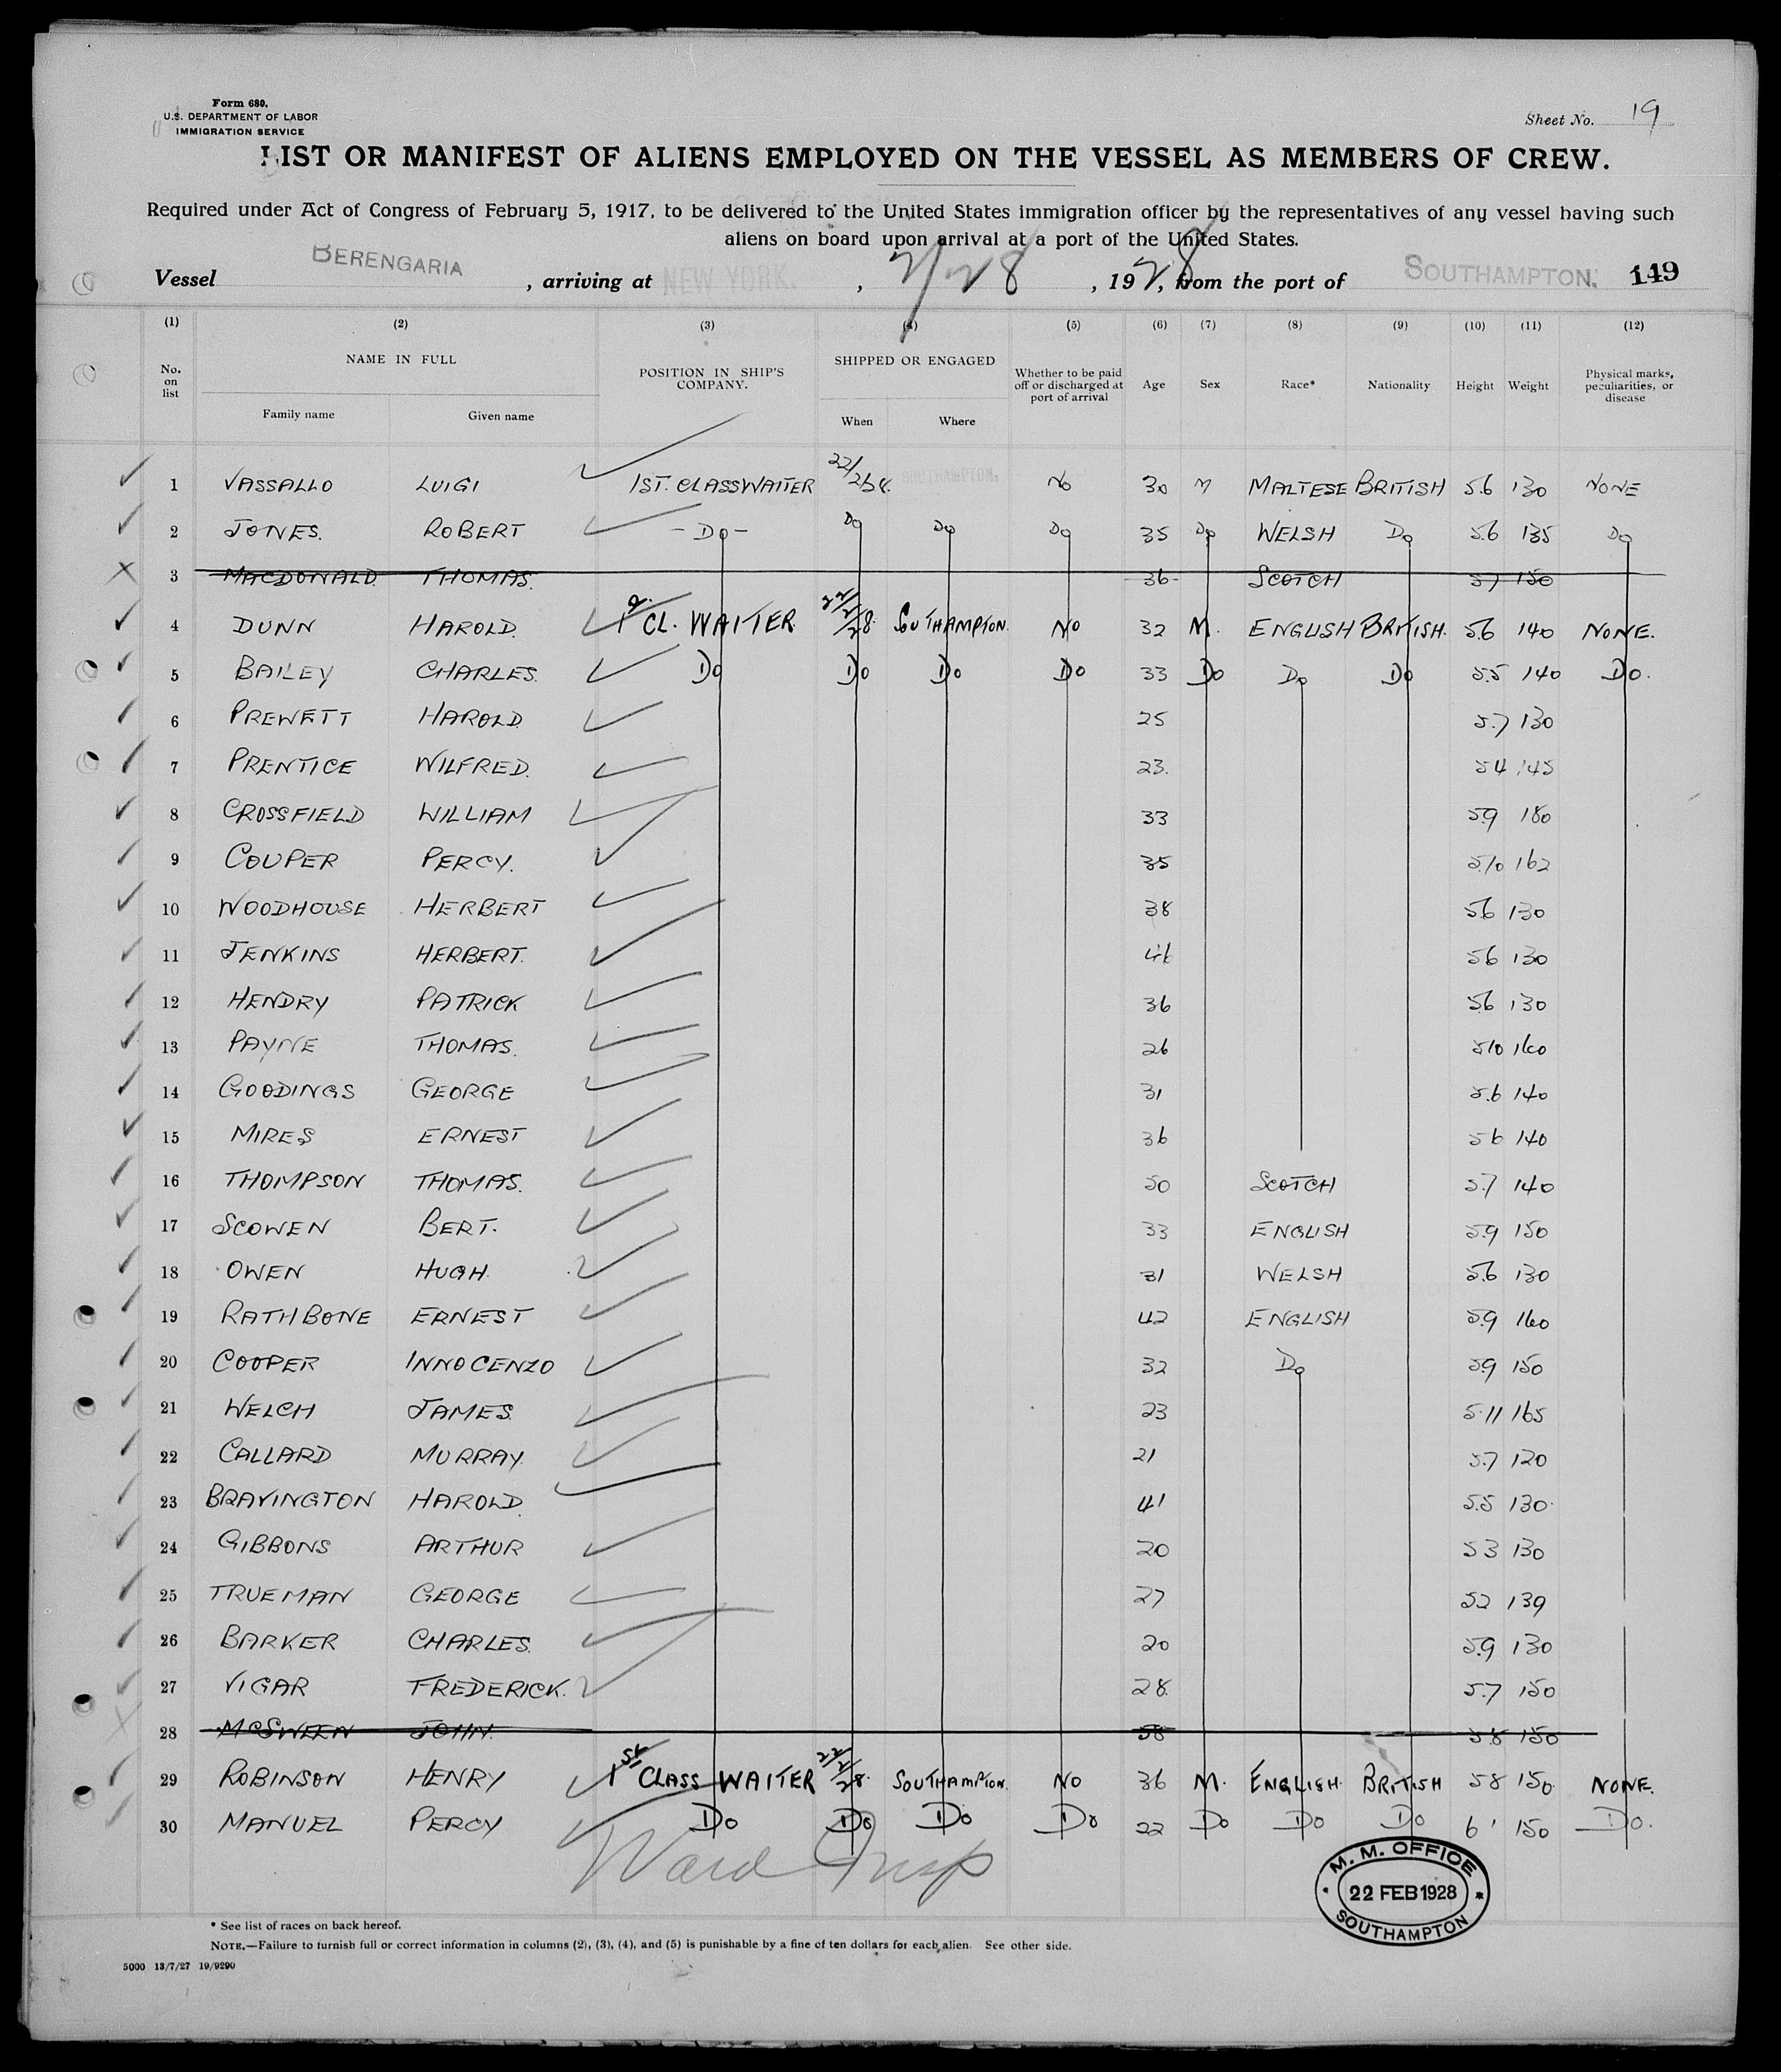 Form 680.
U.S. DEPARTMENT OF LABOR
IMMIGRATION SERVICE
Sheet No. 19
LIST OR MANIFEST OF ALIENS EMPLOYED ON THE VESSEL AS MEMBERS OF CREW.
Required under Act of Congress of February 5, 1917, to be delivered to the United States immigration officer by the representatives of any vessel having such
aliens on board upon arrival at a port of the United States.
Vessel BERENGARIA, arriving at NEW YORK., 2/28, 1928, from the port of SOUTHAMPTON. 149
(1) (2) (3) (4) (5) (6) (7) (8) (9) (10) (11) (12)
No. on list NAME IN FULL Family name Given name POSITION IN SHIP'S COMPANY. SHIPPED OR ENGAGED When Where Whether to be paid off or discharged at port of arrival Age Sex Race* Nationality Height Weight Physical marks, peculiarities, or disease
1 VASSALLO LUIGI 1ST. CLASS WAITER 22/2/28. SOUTHAMPTON. No 30 M MALTESE BRITISH 5.6 130 NONE
2 JONES. ROBERT - Do - Do Do Do 35 Do WELSH Do 5.6 135 Do
3 MACDONALD. THOMAS. 36 SCOTCH 5.7 150
4 DUNN HAROLD. CL. WAITER 22/2/28 SOUTHAMPTON. No 32 M. ENGLISH BRITISH. 5.6 140 NONE.
5 BAILEY CHARLES. Do Do Do Do 33 Do Do Do 5.5 140 Do.
6 PREWETT HAROLD. 25 5.7 130
7 PRENTICE WILFRED. 23. 5.4 145
8 CROSSFIELD WILLIAM 33 5.9 180
9 COUPER PERCY. 35 5.10 162
10 WOODHOUSE HERBERT 38 5.6 130
11 JENKINS HERBERT. 46 5.6 130
12 HENDRY PATRICK 36 5.6 130
13 PAYNE THOMAS. 26 5.10 160
14 GOODINGS GEORGE 31 5.6 140
15 MIRES ERNEST 36 5.6 140
16 THOMPSON THOMAS. 50 SCOTCH 5.7 140
17 SCOWEN BERT. 33 ENGLISH 5.9 150
18 OWEN HUGH 31 WELSH 5.6 130
19 RATHBONE ERNEST 42 ENGLISH 5.9 160
20 COOPER INNOCENZO 32 Do 5.9 150
21 WELCH JAMES. 23 5.11 165
22 CALLARD MURRAY. 21 5.7 120
23 BRAVINGTON HAROLD. 41 5.5 130
24 GIBBONS ARTHUR 20 5.3 130
25 TRUEMAN GEORGE 27 5.2 139
26 BARKER CHARLES. 20 5.9 130
27 VIGAR FREDERICK. 28. 5.7 150
28 McSWEEN JOHN. 58 5.8 150
29 ROBINSON HENRY 1st CLASS WAITER 22/2/28. SOUTHAMPTON. No 36 M. ENGLISH. BRITISH 5.8 150 NONE.
30 MANUEL PERCY Do Do Do Do 22 Do Do Do 6' 150 Do.
Ward Insp
M. M. OFFICE
22 FEB 1928
SOUTHAMPTON
* See list of races on back hereof.
NOTE.—Failure to furnish full or correct information in columns (2), (3), (4), and (5) is punishable by a fine of ten dollars for each alien. See other side.
5000 13/7/27 19/9290